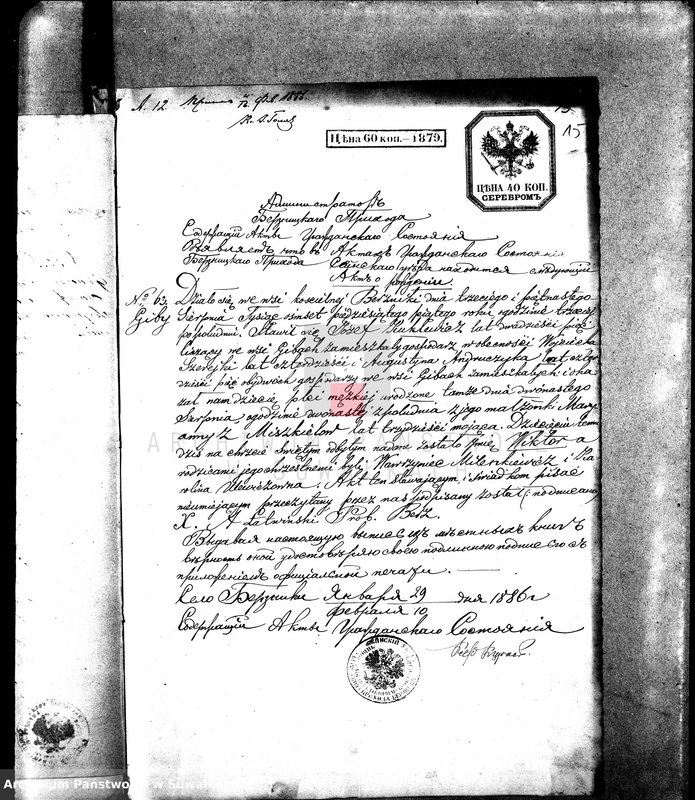 А. 12
15
Цѣна 60 коп.—1879.
ЦѢНА 40 КОП.
СЕРЕБРОМЪ.
Администраторъ
Бержницкаго Прихода
Содержащій Акты Гражданскаго Состоянія
Объявляетъ что въ Актахъ Гражданскаго Состоянія
Бержницкаго Прихода Сейнскаго уѣзда находится слѣдующій
Актъ о рожденіи.
№ 163 Działo się we wsi kościelnej Berzniki dnia trzeciego i piętnastego
Giby Sierpnia Tysiąc ośmset pięćdziesiątego piątego roku, o godzinie trzeciej
po południu. Stawił się Józef Żuklewicz lat dwadzieścia pięć
liczący we wsi Gibach zamieszkały gospodarz w obecności Wojciecha
Szerejki lat czterdzieści i Augustyna Andruczyka lat czter-
dzieści pięć obydwóch gospodarzy we wsi Gibach zamieszkałych i oka
zał nam dziecię płci męzkiej urodzone tamże dnia dwónastego
Sierpnia, o godzinie dwónastej z południa z jego małżonki Mary
anny z Miszkielów lat trzydzieści mającej. Dziecięciu temu
dziś na chrzcie świętym odbytym nadane zostało Imię Wiktor a
rodzicami jego chrzestnemi byli Wawrzyniec Milenkiewicz i Ka
rolina Ulewiczowna. Akt ten stawającym i świadkom pisać
nieumiejącym przeczytany przez nas podpisany został (: podpisano
X. A Łatwinski Prob. Berz.
Выдавая настоящую выпись изъ мѣстныхъ книгъ
вѣрность оной удостовѣряю своею подлинною подписью съ
приложеніемъ оффиціальной печати.
Село Бержники Января 29 дня 1886 г
Февраля 10
Содержащій Акты Гражданскаго Состоянія
Archiwum Państwowe w Suwał